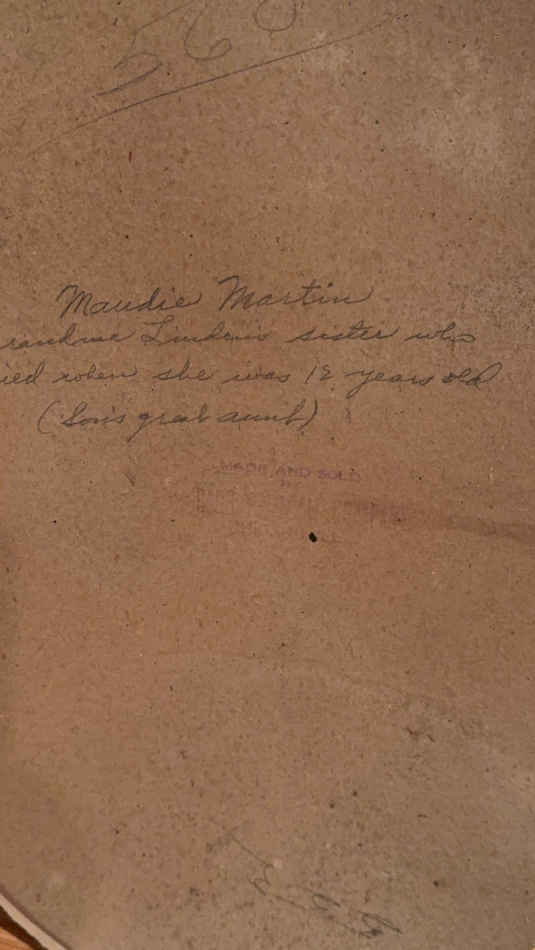 560
Maudie Martin
randma Linden's sister who
ied when she was 12 years old
( great aunt)